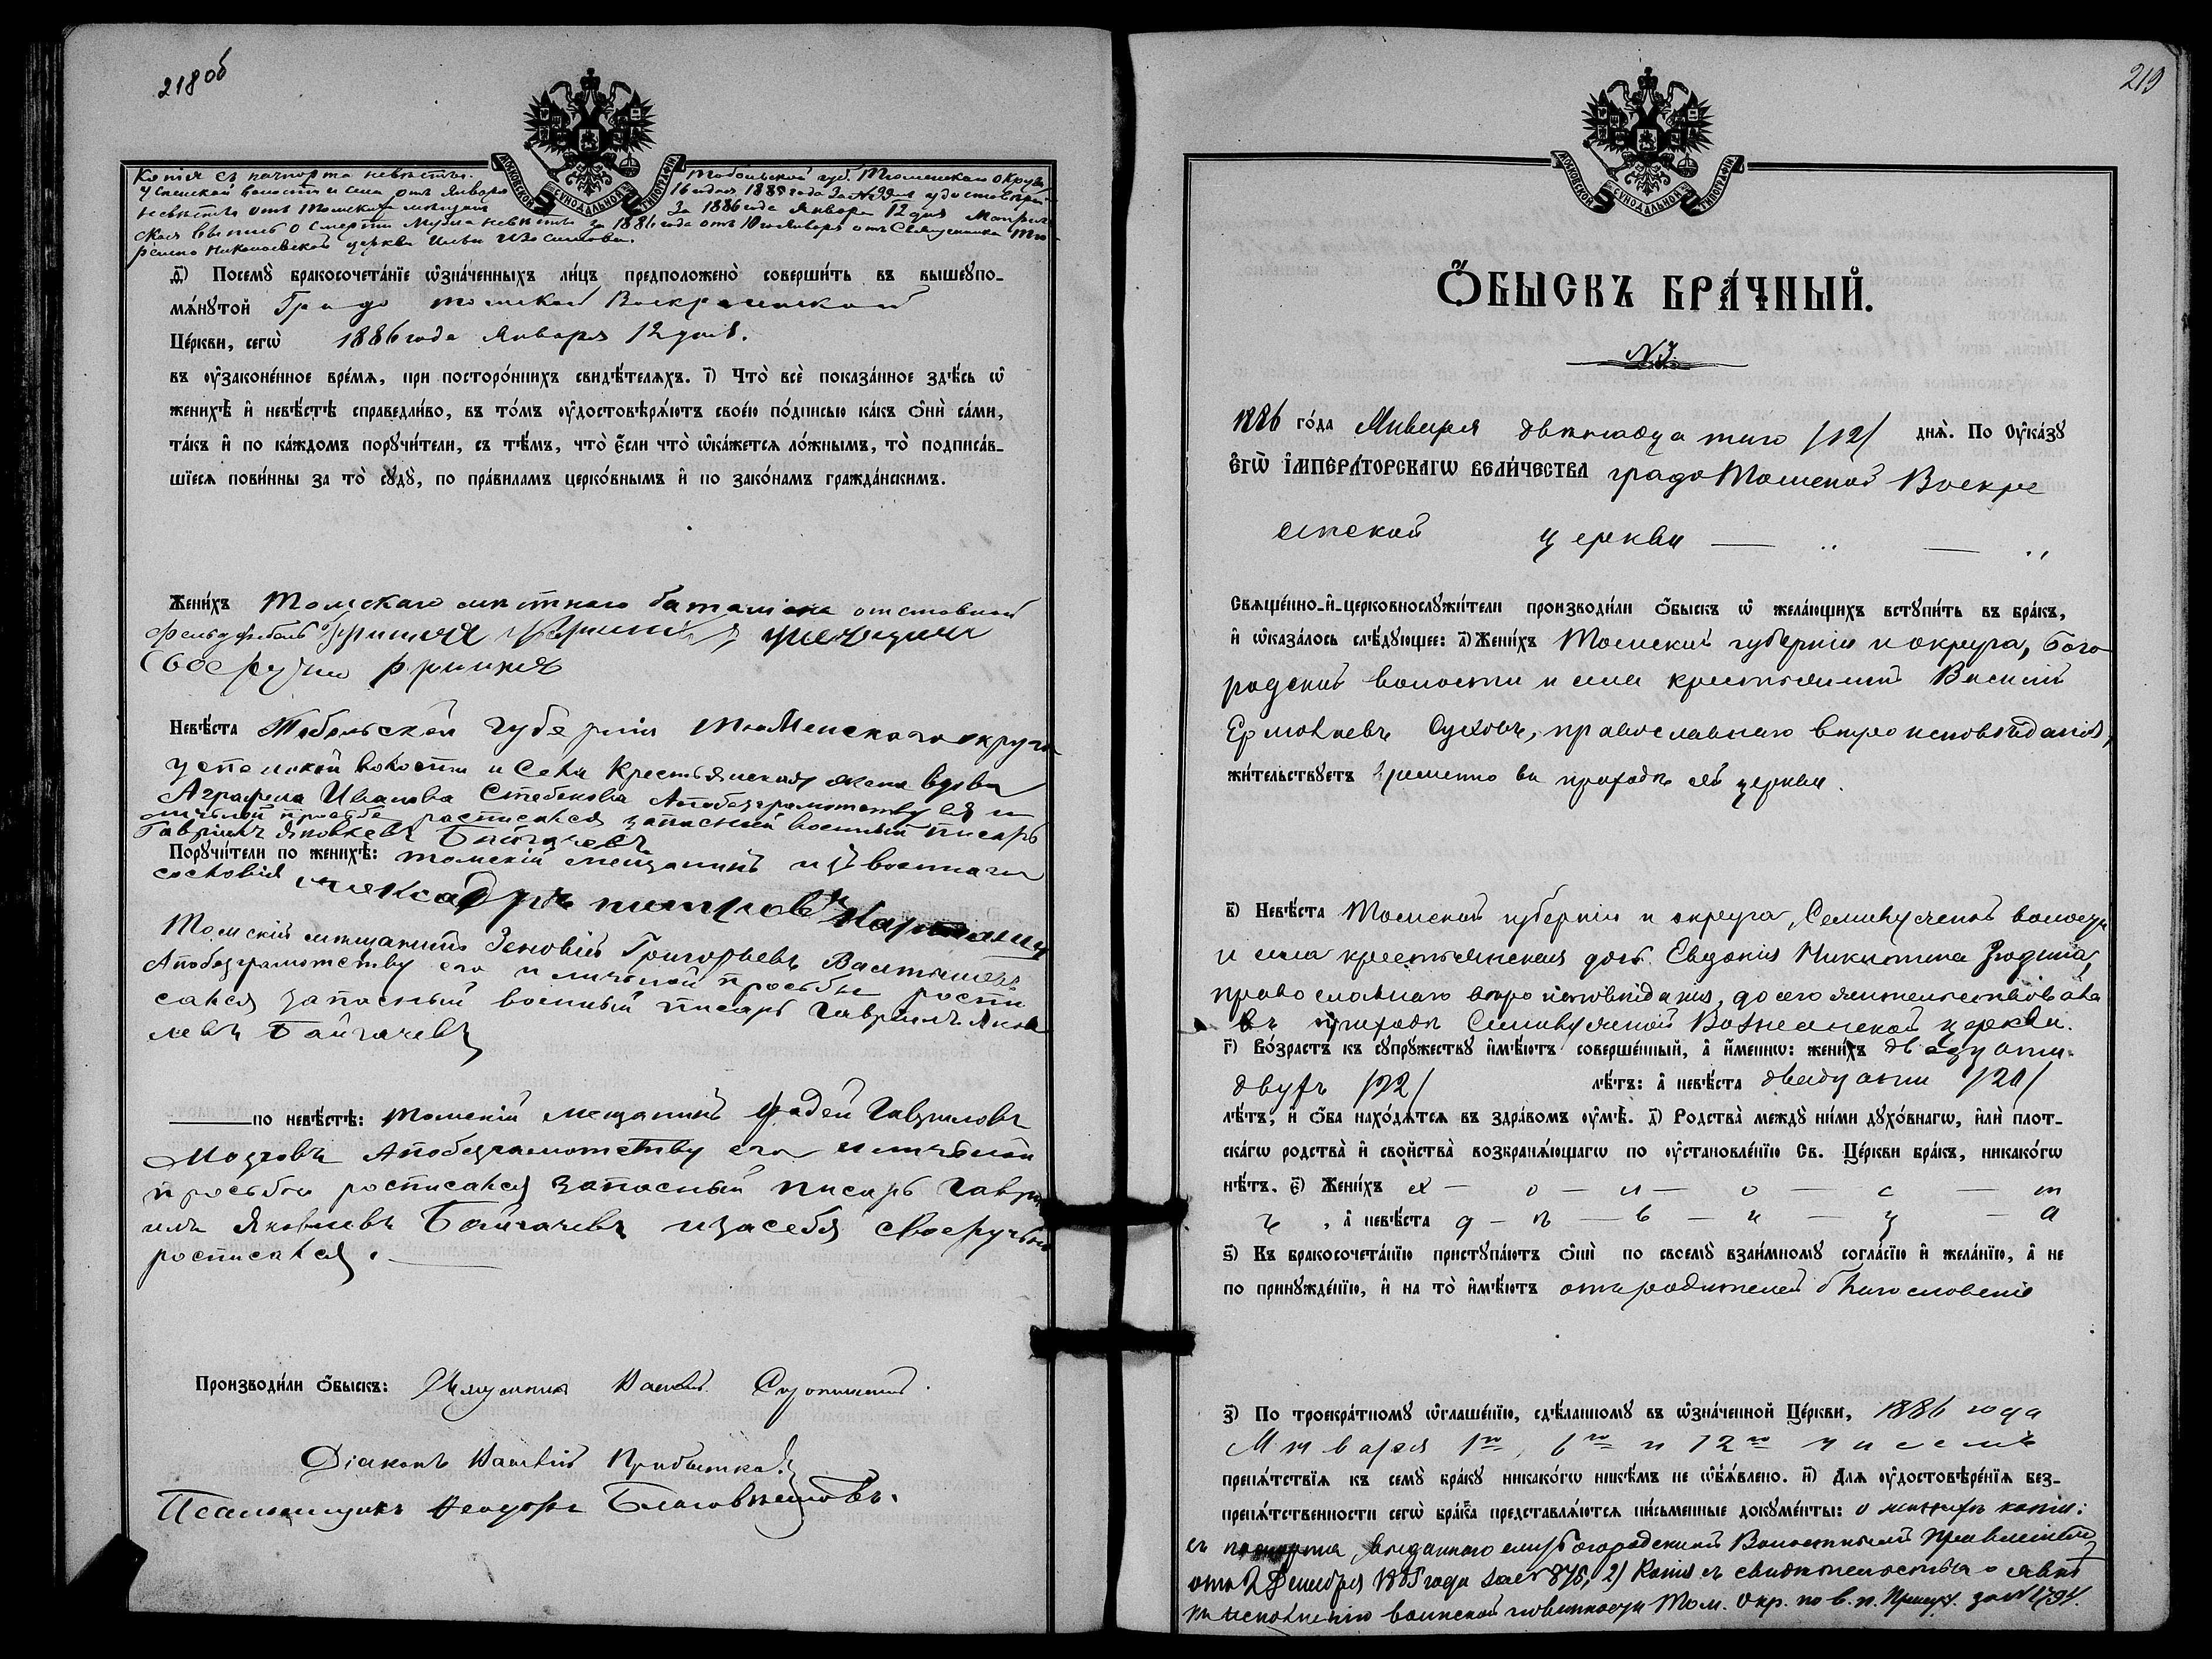 218 об
МОСКОВСКОЙ СѴНОДАЛЬНОЙ ТИПОГРАФІИ
Копія съ пачпорта невѣсты. Тобольской губ. Тюменскаго округа
Успенской волости и села отъ Января 16 1885 года За №
невѣсты отъ Томскихъ За 1886 года Января 12 дня
ская выпись о смерти Мужа невѣсты за 1886 года отъ 10 Января отъ Священника
Николаевской церкви
ѳ҃) Посемꙋ̀ бракосочета́нїе ѡ҆зна́ченныхъ ли́цъ предположено̀ соверши́ть въ вышеꙋпо-
мѧ́нꙋтой Градо Томской Воскресенской
Це́ркви, сегѡ̀ 1886 года Января 12 дня.
въ ᲂу҆законе́нное вре́мѧ, при посторо́ннихъ свидѣ́телѧхъ. і҃) Что̀ всѐ показа́нное здѣ́сь ѡ҆
женихѣ̀ и҆ невѣ́стѣ справедли́во, въ то́мъ ᲂу҆достовѣрѧ́ютъ свое́ю по́дписью ка́къ ѻ҆нѝ са́ми,
та́къ и҆ по ка́ждомъ порꙋчи́тели, съ тѣ́мъ, что̀ є҆́сли что̀ ѡ҆ка́жетсѧ ло́жнымъ, то̀ подписа́в-
шїесѧ пови́нны за то̀ сꙋдꙋ̀, по пра́виламъ церко́внымъ и҆ по зако́намъ гражда́нскимъ.
Жени́хъ Томскаго мѣстнаго баталіона отставной
фельдфебель
Свое ручно
Невѣ́ста Тобольской губерніи Тюменскаго округа
Успенской волости и Села Крестьянская жена вдова
Аграфена Иванова Стебекова Апобезграмотству ея и
личьной просьбе росписался запасный военный писарь
Гавріилъ Яковлевъ Байгачевъ
Порꙋчи́тели по женихѣ̀: томскій мещанинъ изъ военнаго
сословія Алексадръ петровъ
Томскій мещанинъ Зеновій Григорьевъ
Апобезграмотству его и личьной просьбы роспи
сался запасный военный писарь Гавріилъ Яков
левъ Байгачевъ
по невѣ́стѣ: томскій мещанинъ Фадей Гавриловъ
Мозговъ Апобезграмотству его и личьной
просьбы росписался запасный писарь Гаврі
илъ Яковлевъ Байгачевъ изасебя своеручьно
росписался.
Производи́ли ѻ҆́быскъ: Павелъ
Діаконъ Павелъ Прибытковъ
Псаломщикъ Ѳеодоръ Благовѣщ
219
МОСКОВСКОЙ СѴНОДАЛЬНОЙ ТИПОГРАФІИ
Ѻ҆́БЫСКЪ БРА́ЧНЫЙ.
№ 3.
1886 го́да Января двѣнадцатаго /12/ днѧ̀. По Оу҆ка́зꙋ
Є҆ГѠ̀ І҆МПЕРА́ТОРСКАГѠ ВЕЛИ́ЧЕСТВА градоТомской Воскре
сенской церкви
Свѧще́нно-и҆-церковнослꙋжи́тели производи́ли ѻ҆́быскъ ѡ҆ жела́ющихъ встꙋпи́ть въ бра́къ,
и҆ ѡ҆каза́лось слѣ́дꙋющее: а҃) Жени́хъ Томской губерніи и округа, Бого
родской волости и села крестьянинъ Василій
Ермолаевъ Суховъ, православнаго вѣроисповѣданія,
жи́тельствꙋетъ временно въ приходѣ сей церкви.
в҃) Невѣ́ста Томской губерніи и округа, Семилуженской волости
и села крестьянская дочь Евдокія Никитина Зюзина,
православнаго вѣроисповѣданія, до сего жительствовала
въ приходѣ Семилуженской Вознесенской церкви.
г҃) Во́зрастъ къ сꙋпрꙋ́жествꙋ и҆мѣ́ютъ соверше́нный, а҆ и҆́меннѡ: жени́хъ двадцати
двухъ /22/ лѣ́тъ: а҆ невѣ́ста двадцати /20/
лѣ́тъ, и҆ ѻ҆́ба нахо́дѧтсѧ въ здра́вомъ ᲂу҆мѣ̀. д҃) Родства̀ междꙋ̀ ни́ми дꙋхо́внагѡ, и҆лѝ плот-
ска́гѡ родства̀ и҆ сво́йства возбранѧ́ющагѡ по ᲂу҆становле́нїю Св. Це́ркви бра́къ, никако́гѡ
нѣ́тъ. є҃) Жени́хъ х — о — л — о — с — т
ъ , а҆ невѣ́ста д — ѣ — в — и — ц — а
ѕ҃) Къ бракосочета́нїю пристꙋпа́ютъ ѻ҆нѝ по своемꙋ̀ взаи́мномꙋ согла́сїю и҆ жела́нїю, а҆ не
по принꙋжде́нїю, и҆ на то̀ и҆мѣ́ютъ отъ родителей благословеніе
з҃) По троекра́тномꙋ ѡ҆глаше́нїю, сдѣ́ланномꙋ въ ѡ҆зна́ченной Це́ркви, 1886 года
Января 1го, 6го и 12го чиселъ
препѧ́тствїѧ къ семꙋ̀ бра́кꙋ никако́гѡ никѣ́мъ не ѡ҆б̾ѧ́влено. и҃) Длѧ ᲂу҆достовѣре́нїѧ без-
препѧ́тственности сегѡ̀ бра́ка представлѧ́ютсѧ пи́сьменные докꙋме́нты: о женихѣ копія:
съ паспорта, выданнаго ему Богородскимъ Волостнымъ Правленіемъ
отъ 2 Декабря 1885 года за № 876; 2) Копія съ свидѣтельства о явкѣ
къ исполненію воинской повинности Том. Окр. по в. п. Присут. за № 1794.